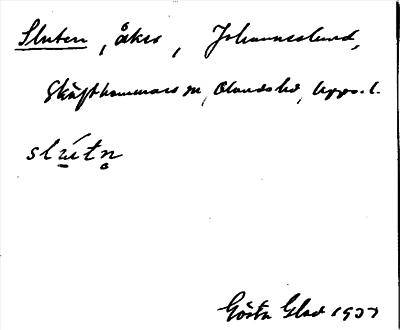 Sluten, åker, Johanneslund,
Skäfthammars sn, Olands hd, Upps. l.
slútn̥
Gösta Glad 1937